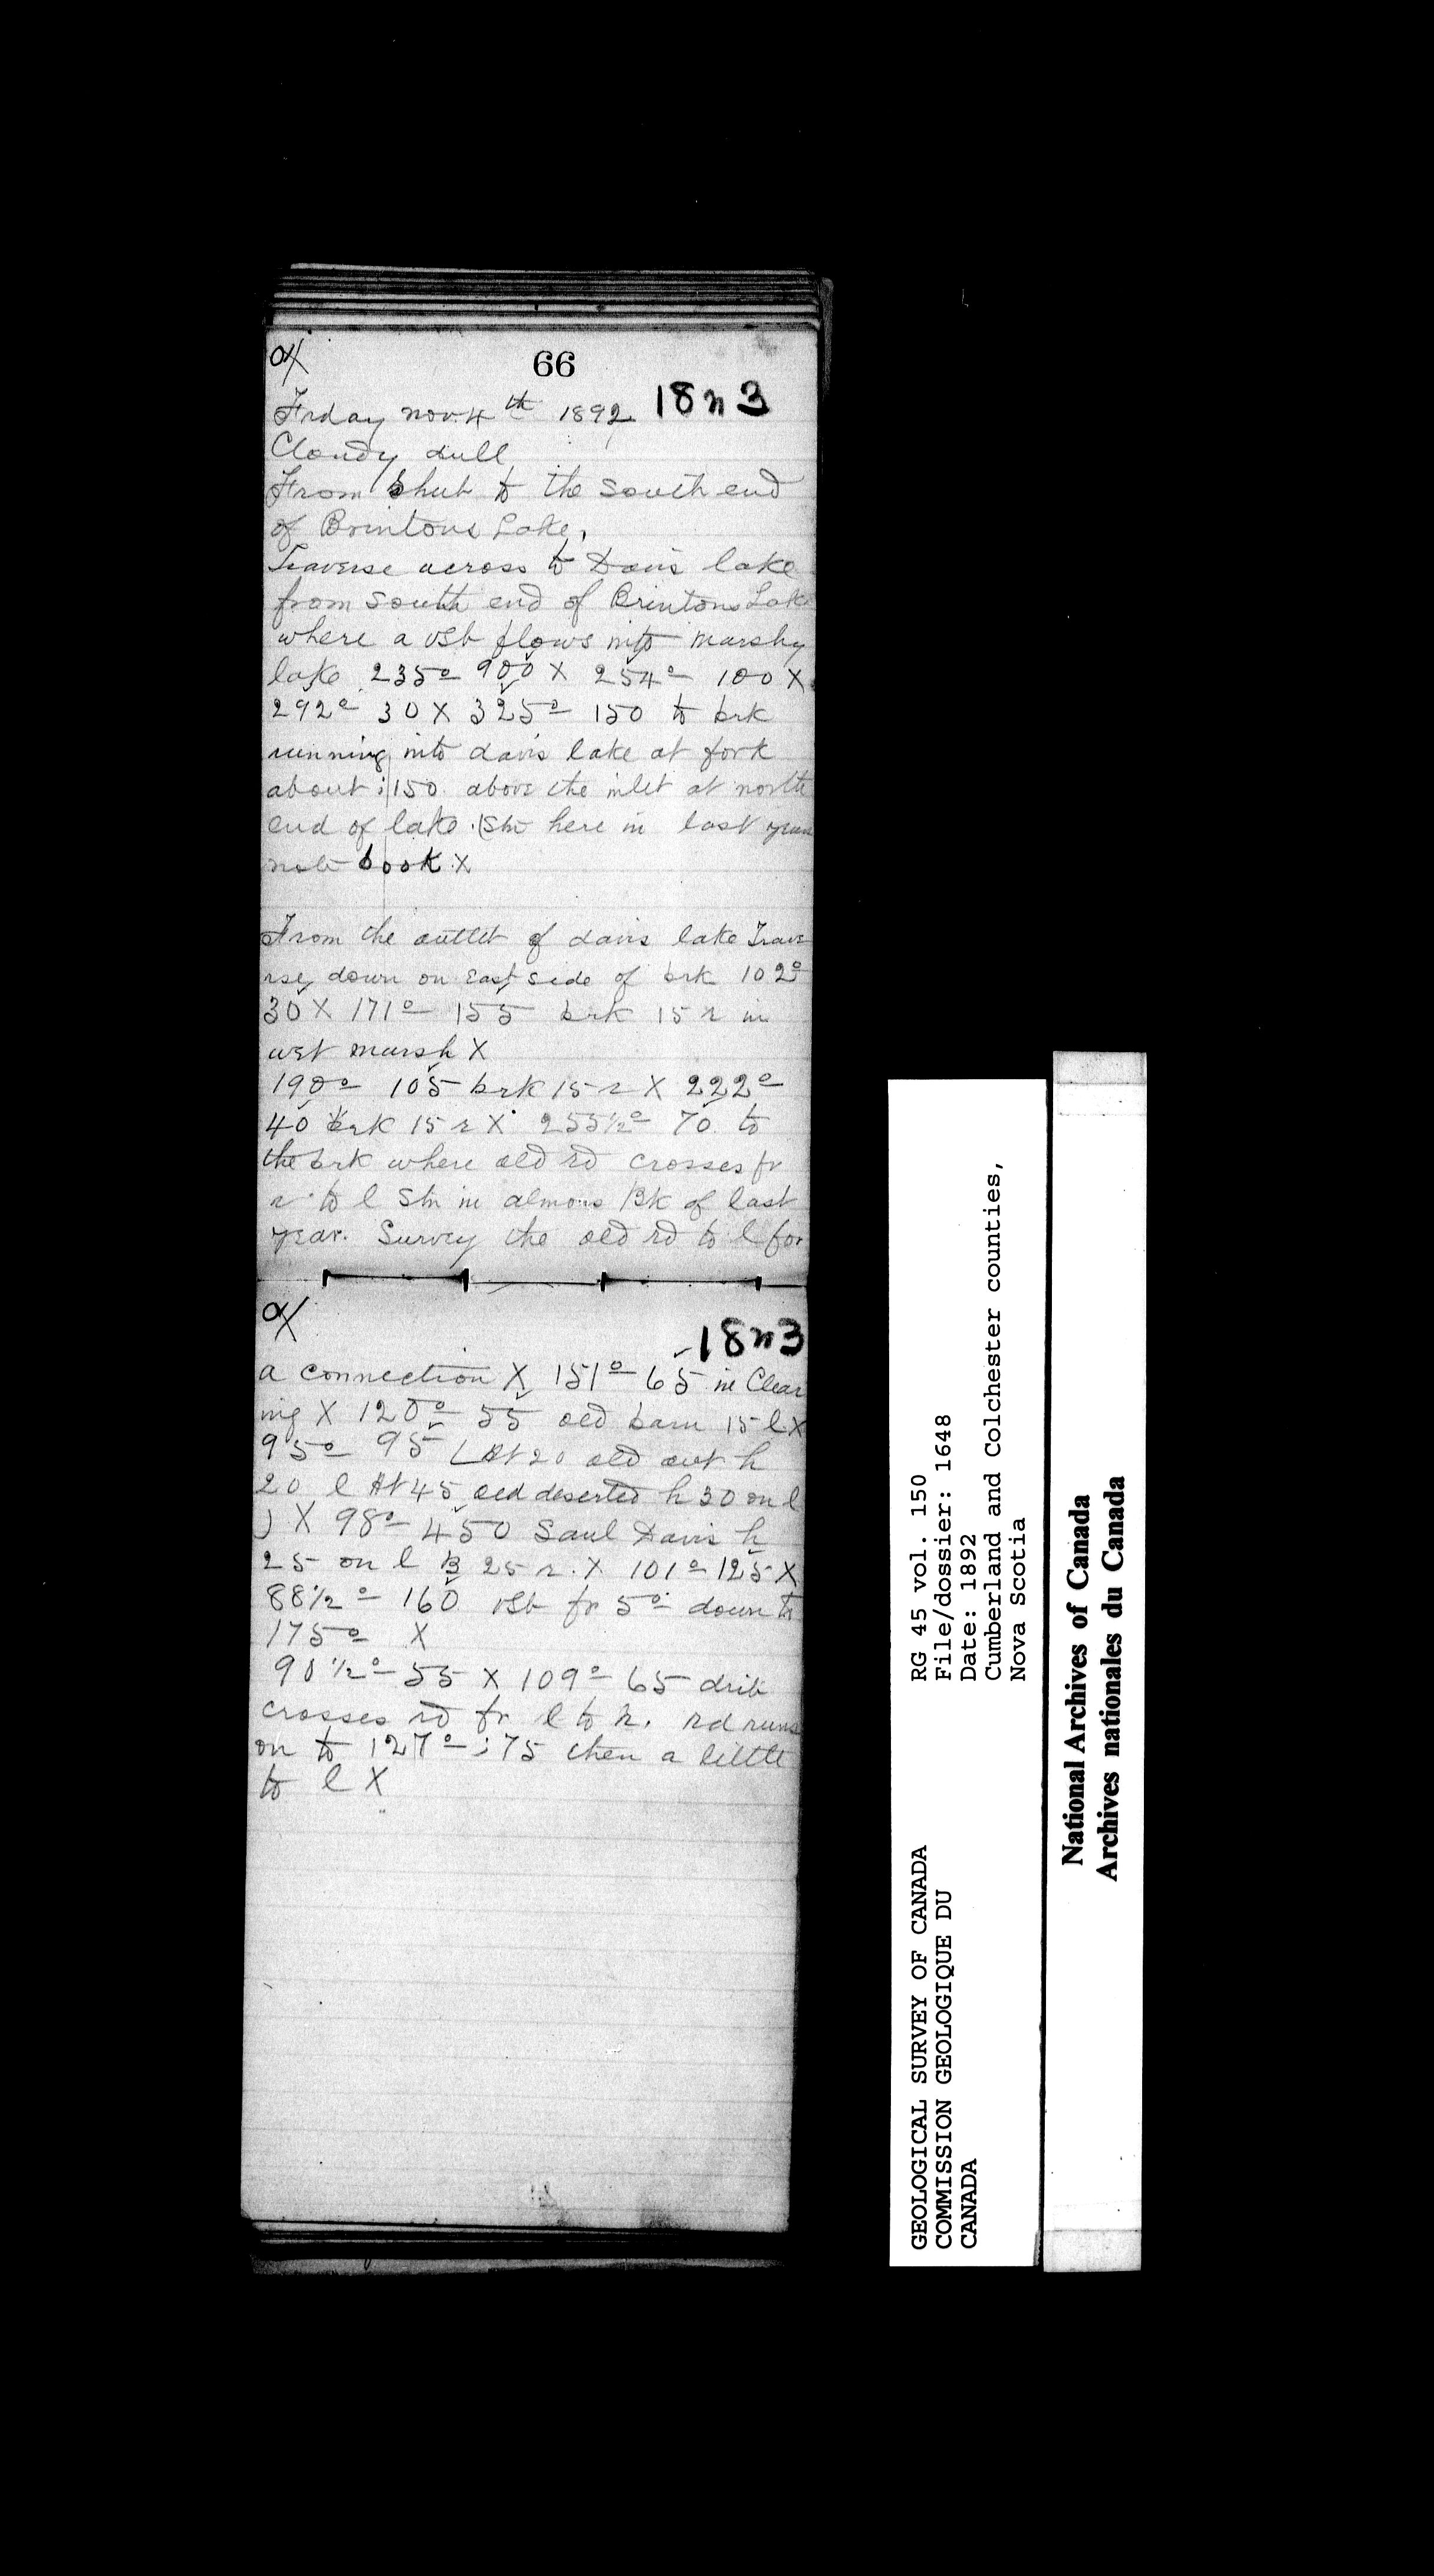 66
18n3
Friday nov. 4th 1892
Cloudy dull
From Shut to the South end
of Brintons Lake,
Traverse across to Davis lake
from South end of Brintons Lake
where a vsb flows into marshy
lake 235° 900 X 254° 100 X
292° 30 X 325° 150 to brk
running into davis lake at fork
about 150 above the inlet at north
end of lake. (Stn here in last year
note book X
From the outlet of davis lake Trave
rse down on East side of brk 102°
30 X 171° 155 brk 15 r in
wet marsh X
190° 105 brk 15 r X 222°
40 brk 15 r X 255½° 70 to
the brk where old rd crosses fr
r to l Stn in Bk of last
year. Survey the old rd to l for
18n3
a connection X 151° 65 in Clear
ing X 120° 55 old barn 15 l X
95° 95 (At 20 old h
20 l At 45 old deserted h 30 on l
) X 98° 450 Saul Davis h
25 on l B 25 r. X 101° 125 X
88½° 160 vsb fr 5° down to
175° X
90½° 55 X 109° 65
crosses rd fr l to r. rd runs
on to 127° 75 then a little
to l X
GEOLOGICAL SURVEY OF CANADA
COMMISSION GEOLOGIQUE DU
CANADA
RG 45 vol. 150
File/dossier: 1648
Date: 1892
Cumberland and Colchester counties,
Nova Scotia
National Archives of Canada
Archives nationales du Canada